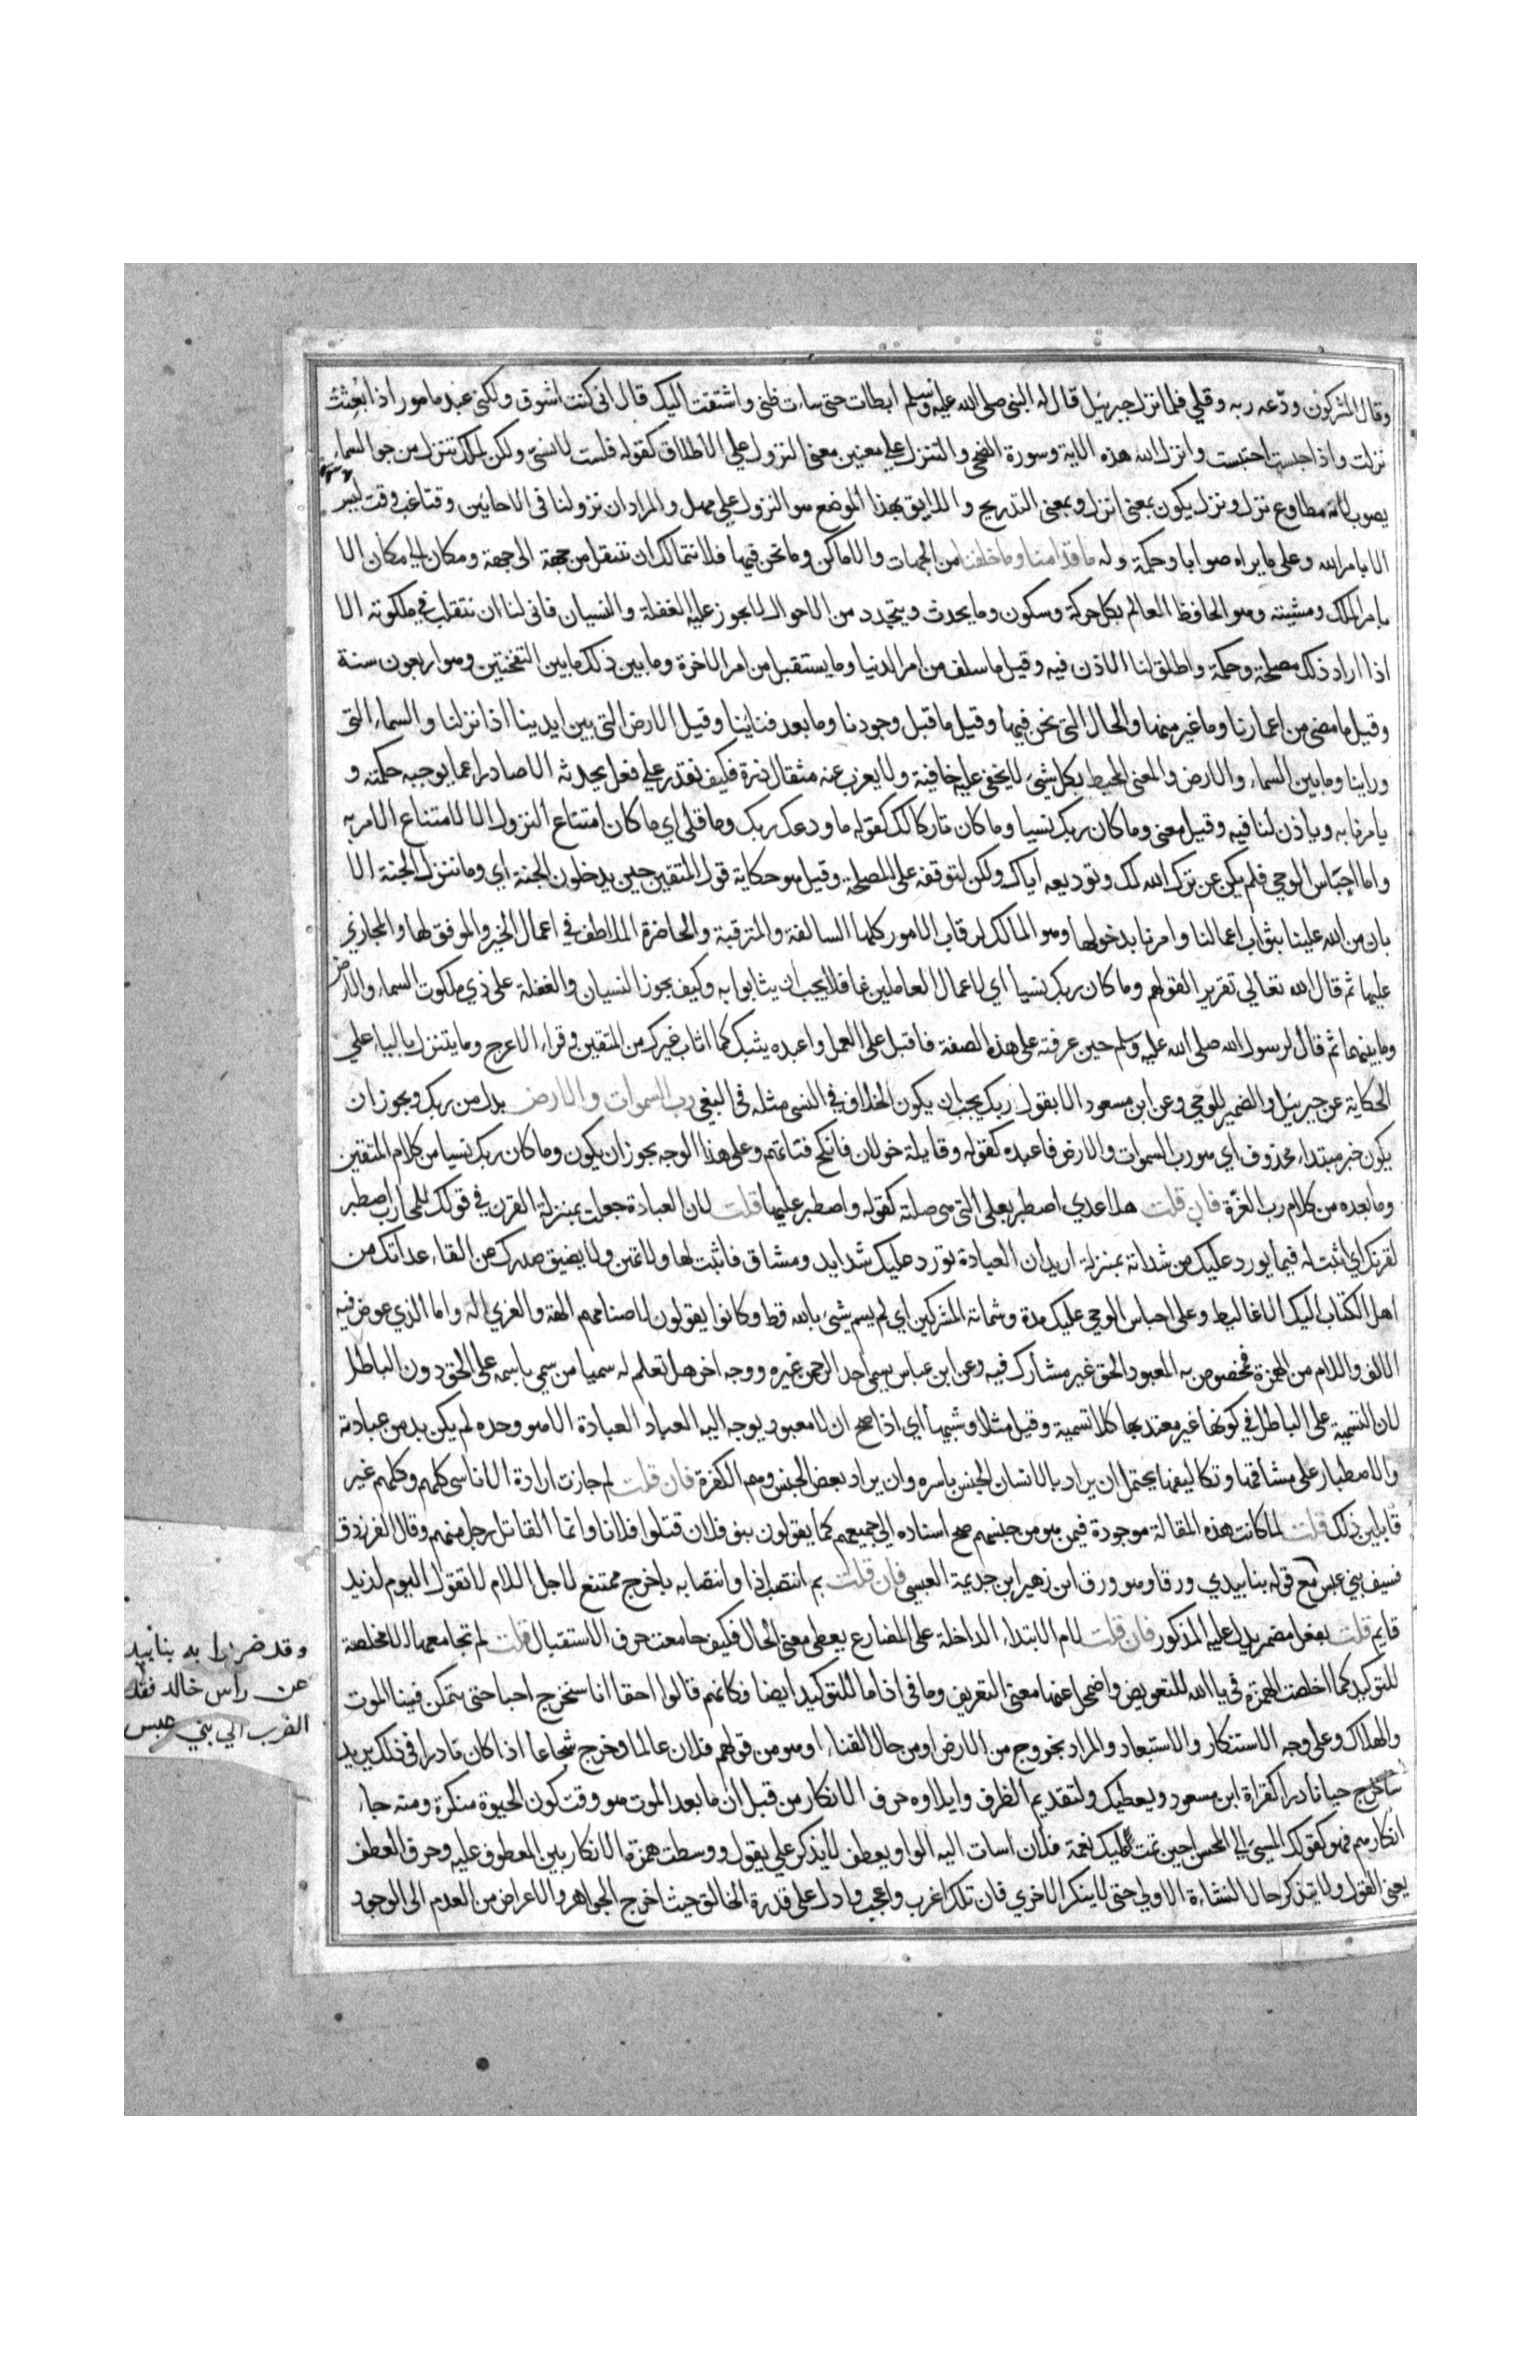 وقال المشركون ودّعه ربه وقلي فلما نزل جبرئيل قال له النبي صلى الله عليه وسلم ابطات حتى ساءت ظني واشتقت اليك قال اني كنت اشوق ولكني عبد مامور اذا بُعثت
نزلت واذا حبست احتبست وانزل الله هذه الاية وسورة الضحى والتنزل علي معنيين معنى النزول علي الاطلاق كقوله فلست لانسيّ ولكن لملاك تنزل من جو السماء
يصوب لانه مطاوع نزل ونزل يكون بمعنى انزل وبمعنى التدريج واللايق بهذا الموضع هو النزول علي مهل والمراد ان نزولنا في الاحايين وقتا غب وقت ليس
الا بامر الله وعلى ما يراه صوابا وحكمة وله ما قدامنا وما خلفنا من الجهات والاماكن وما نحن فيها فلا نتمالك ان ننتقل من جهة الى جهة ومكان الى مكان الا
بامر الملك ومشيته وهو الحافظ العالم بكل حركة وسكون وما يحدث ويتجدد من الاحوال لا يجوز عليه الغفلة والنسيان فاني لنا ان نتقلب في ملكوته الا
اذا اراد ذلك مصلحة وحكمة واطلق لنا الاذن فيه وقيل ما سلف من امر الدنيا وما يستقبل من امر الاخرة وما بين ذلك ما بين النفختين وهو اربعون سنة
وقيل ما مضى من اعمارنا وما غبر منها والحال التي نحن فيها وقيل ما قبل وجودنا وما بعد فناينا وقيل الارض التي بين ايدينا اذا نزلنا والسماء التي
وراينا وما بين السماء والارض والمعنى المحيط بكل شيء لا يخفى عليه خافية ولا يعزب عنه مثقال ذرة فكيف نقدر علي فعل يحدثه الا صادرا عما يوجبه حكمته و
يامرنا به وياذن لنا فيه وقيل معنى وما كان ربك نسيا وما كان تاركا لك كقوله ما ودعك ربك وما قلى اي ما كان امتناع النزول الا لامتناع الامر به
واما احتباس الوحي فلم يكن عن ترك الله لك وتوديعه اياك ولكن لتوقفه على المصلحة وقيل هو حكاية قول المتقين حين يدخلون الجنة اي وما نتنزل الجنة الا
بان من الله علينا بثواب اعمالنا وامرنا بدخولها وهو المالك لرقاب الامور كلها السالفة والمترقبة والحاضرة الملاطف في اعمال الخير والموفق لها والمجازي
عليها ثم قال الله تعالي تقريرا لقولهم وما كان ربك نسيا اي لاعمال العاملين غافلا يجب ان يثابوا به وكيف يجوز النسيان والغفلة على ذي ملكوت السماء والارض
وما بينهما ثم قال لرسول الله صلى الله عليه وسلم حين عرفته على هذه الصفة فاقبل على العمل واعبده يثبك كما اثاب غيرك من المتقين وقراء الاعرج وما يتنزل بالياء علي
الحكاية عن جبرئيل والضمير للوحي وعن ابن مسعود الا بقول ربك يجب ان يكون الخلاف في النسي مثله في البغي رب السموات والارض بدل من ربك ويجوز ان
يكون خبر مبتداء محذوف اي هو رب السموات والارض فاعبده كقوله وقايلة خولان فانكح فتاتهم وعلى هذا الوجه يجوز ان يكون وما كان ربك نسيا من كلام المتقين
وما بعده من كلام رب العزّة فان قلت هلا عدي اصطبر بعلى التي هي صلته كقوله واصطبر عليها قلت لان العبادة جعلت بمنزلة القرن في قولك للمحارب اصطبر
لقرنك اي اثبت له فيما يورد عليك من شداته بمنزلة اريد ان العبادة تورد عليك شدايد ومشاق فاثبت لها ولا تهن ولا يضيق صدرك من القاء عداتك من
اهل الكتاب اليك الاغاليط وعلى احباس الوحي عليك مدة وشماتة المشركين اي لم يسم شيء بالله قط وكانوا يقولون لاصنامهم الهة والعزي اله واما الذي عوض فيه
الالف واللام من الهمزة فمخصوص به المعبود الحق غير مشارك فيه وعن ابن عباس يسمى احد الرحمن غيره ووجه اخر هل تعلم له سميا من سمي باسمه على الحق دون الباطل
لان التسمية على الباطل في كونها غير معتد بها كلا تسمية وقيل مثلا وشبيها اي اذا صح ان لا معبود يوجه اليه العباد العبادة الا هو وحده لم يكن بد من عبادته
والاصطبار على مشاقها وتكاليفها يحتمل ان يراد بالانسان الجنس باسره وان يراد بعض الجنس وهم الكفرة فان قلت لم جازت ارادة الاناسي كلهم وكلهم غير
قايلين ذلك قلت لما كانت هذه المقالة موجودة فيمن هو من جنسهم صح اسناده الي جميعهم كما يقولون بنو فلان قتلوا فلانا وانما القاتل رجل منهم وقال الفرزدق
فسيف بني عبس مع قوله بنا بيدي ورقا وهو ورق ابن زهير ابن جديمة العبسي فان قلت بم انتصب اذا وانتصابه باخرج ممتنع لاجل اللام لا تقول اليوم لزيد
قايم قلت بفعل مضمر يدل عليه المذكور فان قلت لام الابتداء الداخلة على المضارع يعطى معنى الحال فكيف جامعت حرف الاستقبال قلت لم تجامعها الا مخلصة
للتوكيد كما اخلصت الهمزة في يا الله للتعويض واضمحل عنها معنى التعريف وما في اذا ما للتوكيد ايضا وكانهم قالوا احقا انا سنخرج احيا حتى يتمكن فينا الموت
والهلاك وعلى وجه الاستنكار والاستبعاد والمراد بخروج من الارض او من حال الفناء او هو من قولهم فلان عالما وخرج شجاعا اذا كان قادرا في ذلك يريد
ساخرج حيا نادرا كقراة ابن مسعود ويعطيك ولتقديم الظرف وايلاوه حرف الانكار من قبل ان ما بعد الموت هو وقت كون الحيوة منكرة ومنه جاء
انكارهم فهو كقولك للمسيئ الى المحسن احين تمت عليك نعمة فلان اسات اليه الواو يعطف لا يذكر علي يقول ووسطت همزة الانكار بين المعطوف عليه وحرف العطف
يعنى القول ولا يتذكر حال النشاءة الاولي حتى لا ينكر الاخري فان تلك اغرب واعجب وادل على قدرة الخالق حيث اخرج الجواهر والاعراض من العدم الى الوجود
وقد ضربوا به بنا بيد
عن راس خالد فقد
الضرب الي بني عبس